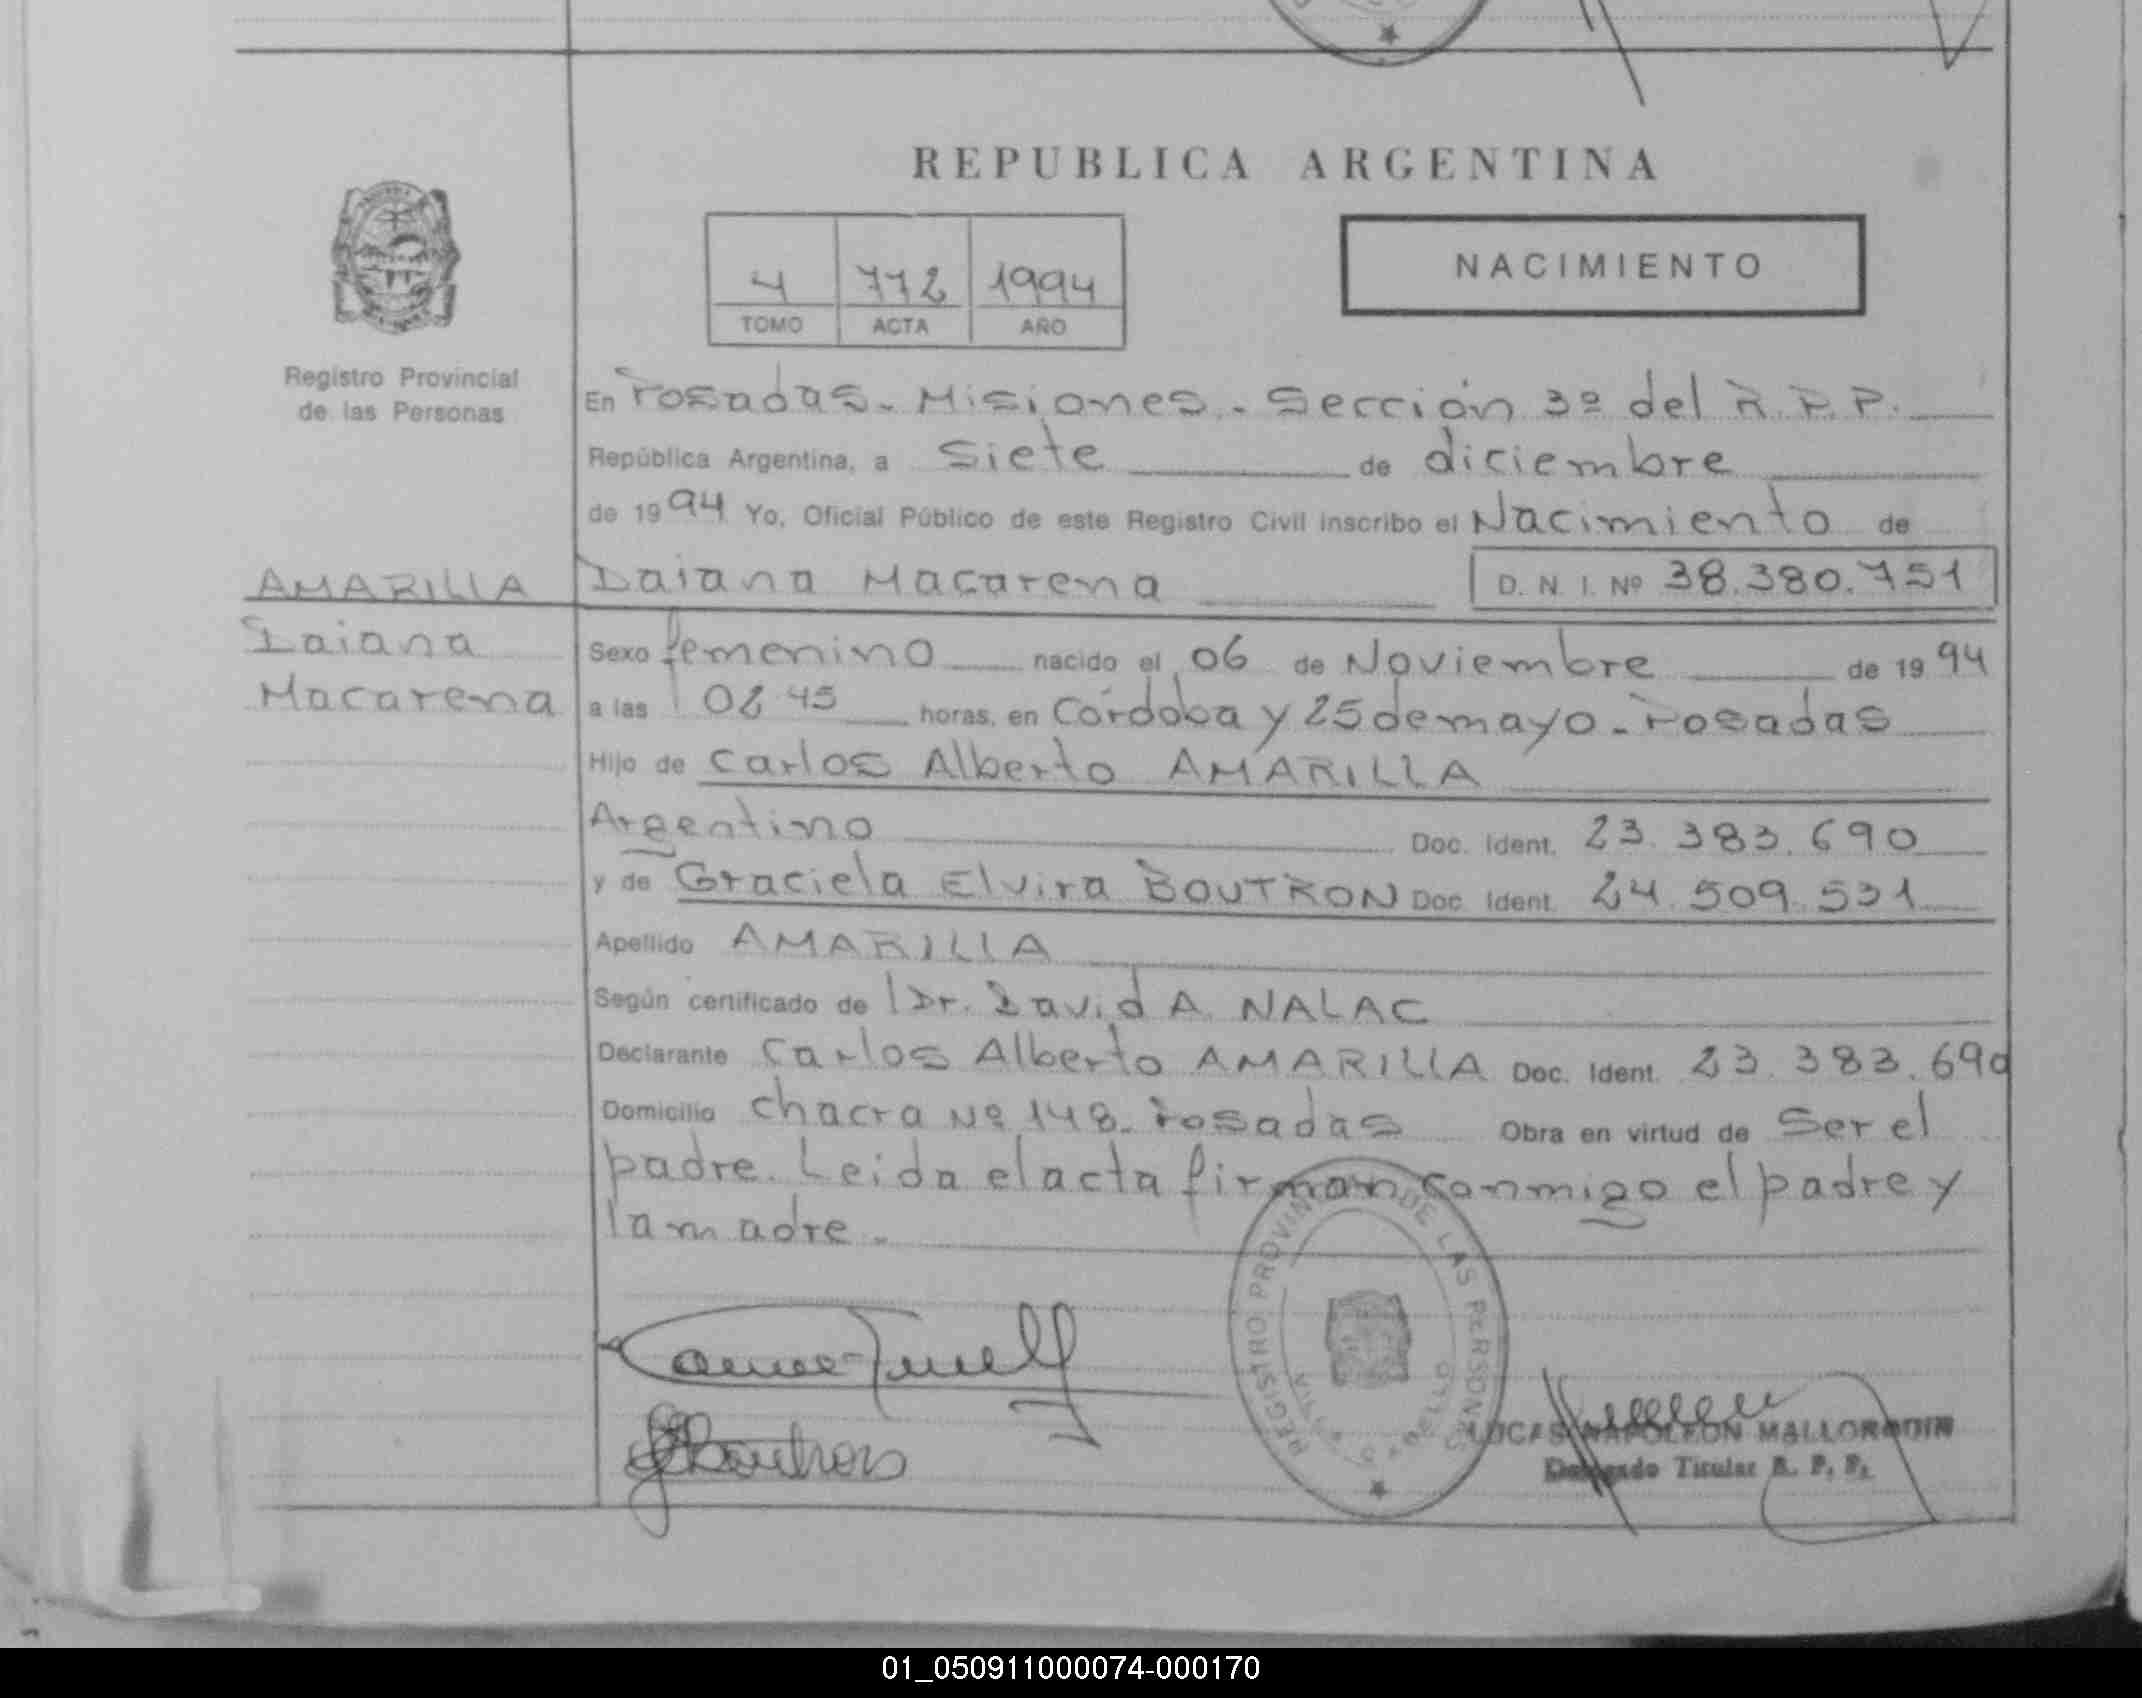 REPUBLICA ARGENTINA
4 772 1994
TOMO ACTA AÑO
NACIMIENTO
Registro Provincial
de las Personas
En Posadas - Misiones - Sección 3º del R.P.P.
República Argentina, a siete de diciembre
de 1994 Yo, Oficial Público de este Registro Civil inscribo el Nacimiento de
AMARILLA
Daiana
Macarena
Daiana Macarena D. N. I. Nº 38.380.751
Sexo femenino nacido el 06 de Noviembre de 1994
a las 02 45 horas, en Córdoba y 25 de mayo - Posadas
Hijo de Carlos Alberto AMARILLA
Argentino Doc. Ident. 23.383.690
y de Graciela Elvira BOUTRON Doc. Ident. 24.509.531
Apellido AMARILLA
Según certificado de Dr. David A. NALAC
Declarante Carlos Alberto AMARILLA Doc. Ident. 23.383.690
Domicilio Chacra Nº 148 - Posadas Obra en virtud de ser el
padre. Leida el acta firman conmigo el padre y
la madre.-
REGISTRO PROVINCIAL DE LAS PERSONAS
LUCAS NAPOLEON MALLORQUIN
Delegado Titular R. P. P.
01_050911000074-000170